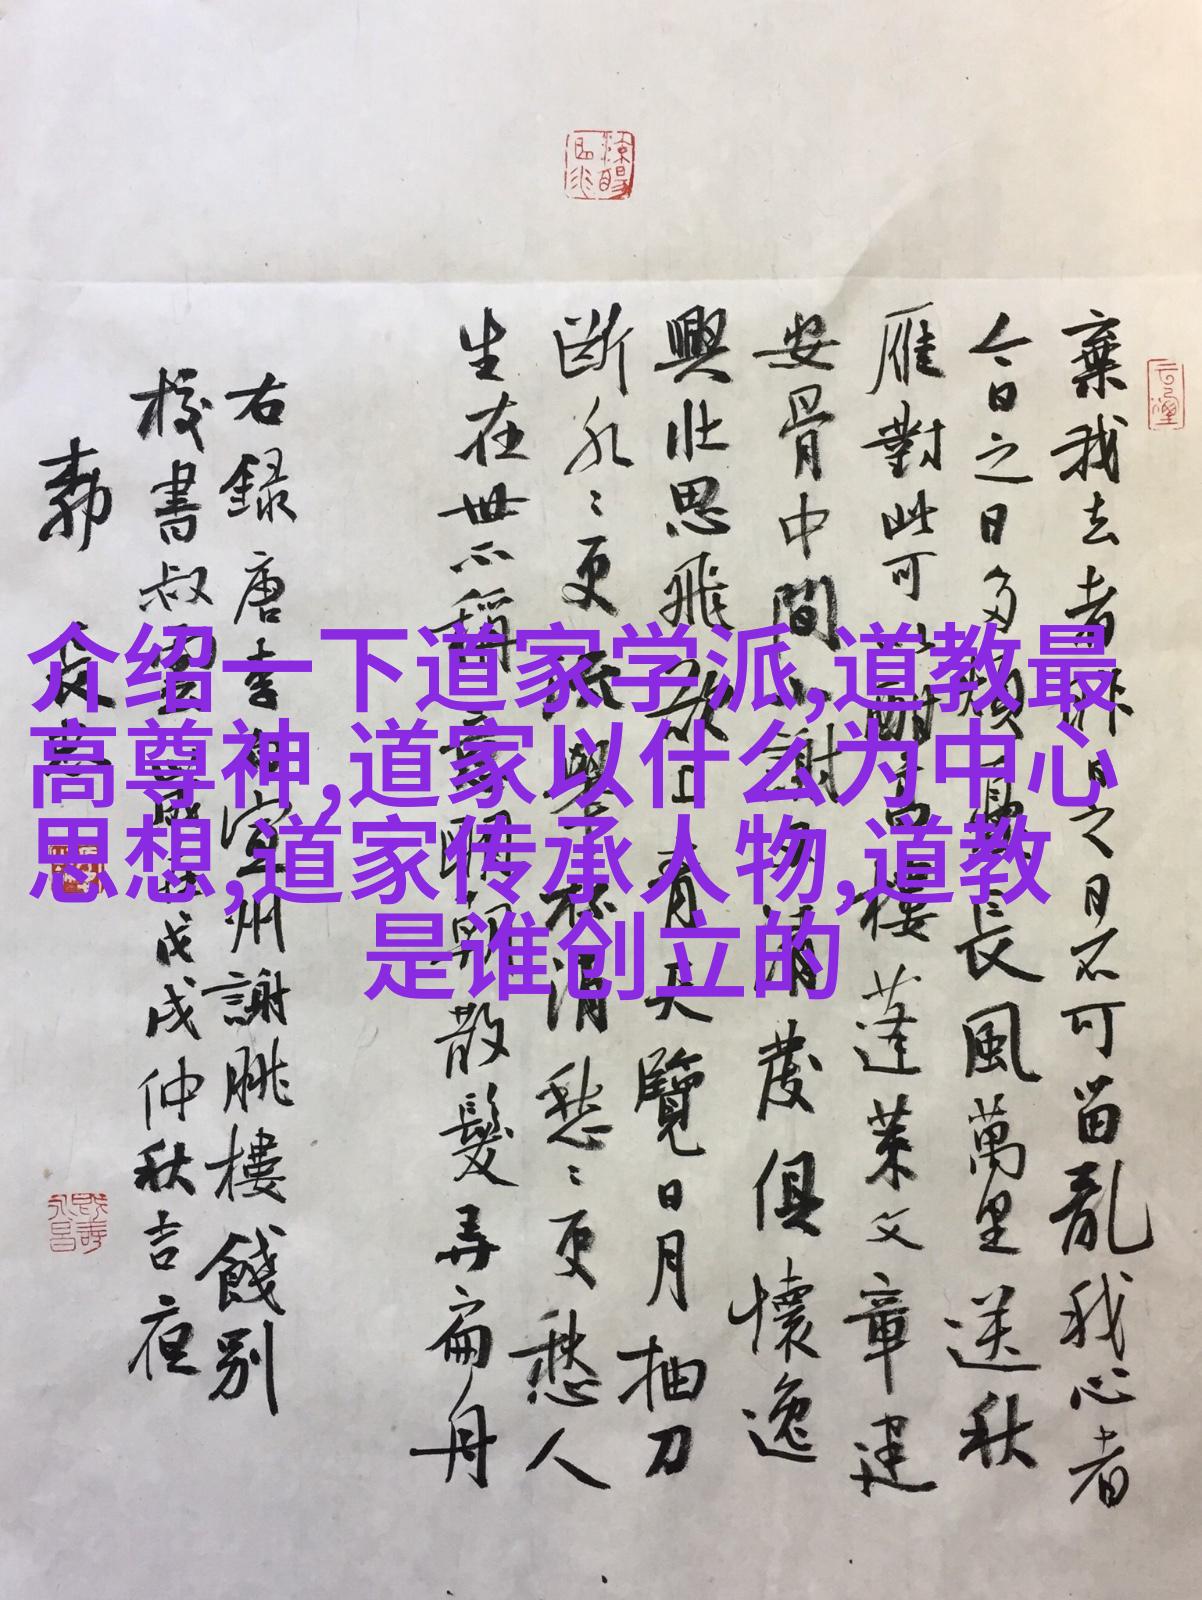 介绍一下道家学派,道教最
高尊神,道家以什么为中心
思想,道家传承人物,道教
是谁创立的
棄我去者昨日之日不可留亂我心者
今日之日多煩憂長風萬里送秋
雁對此可以酣高樓蓬萊文章建
安骨中間小謝又清發俱懷逸
興壯思飛欲上青天覽日月抽刀
斷水〻更流舉杯消愁〻更愁人
生在世不稱意明朝散髮弄扁舟
右録唐李白宣州謝朓樓餞別
校書叔雲戊戌仲秋吉夜